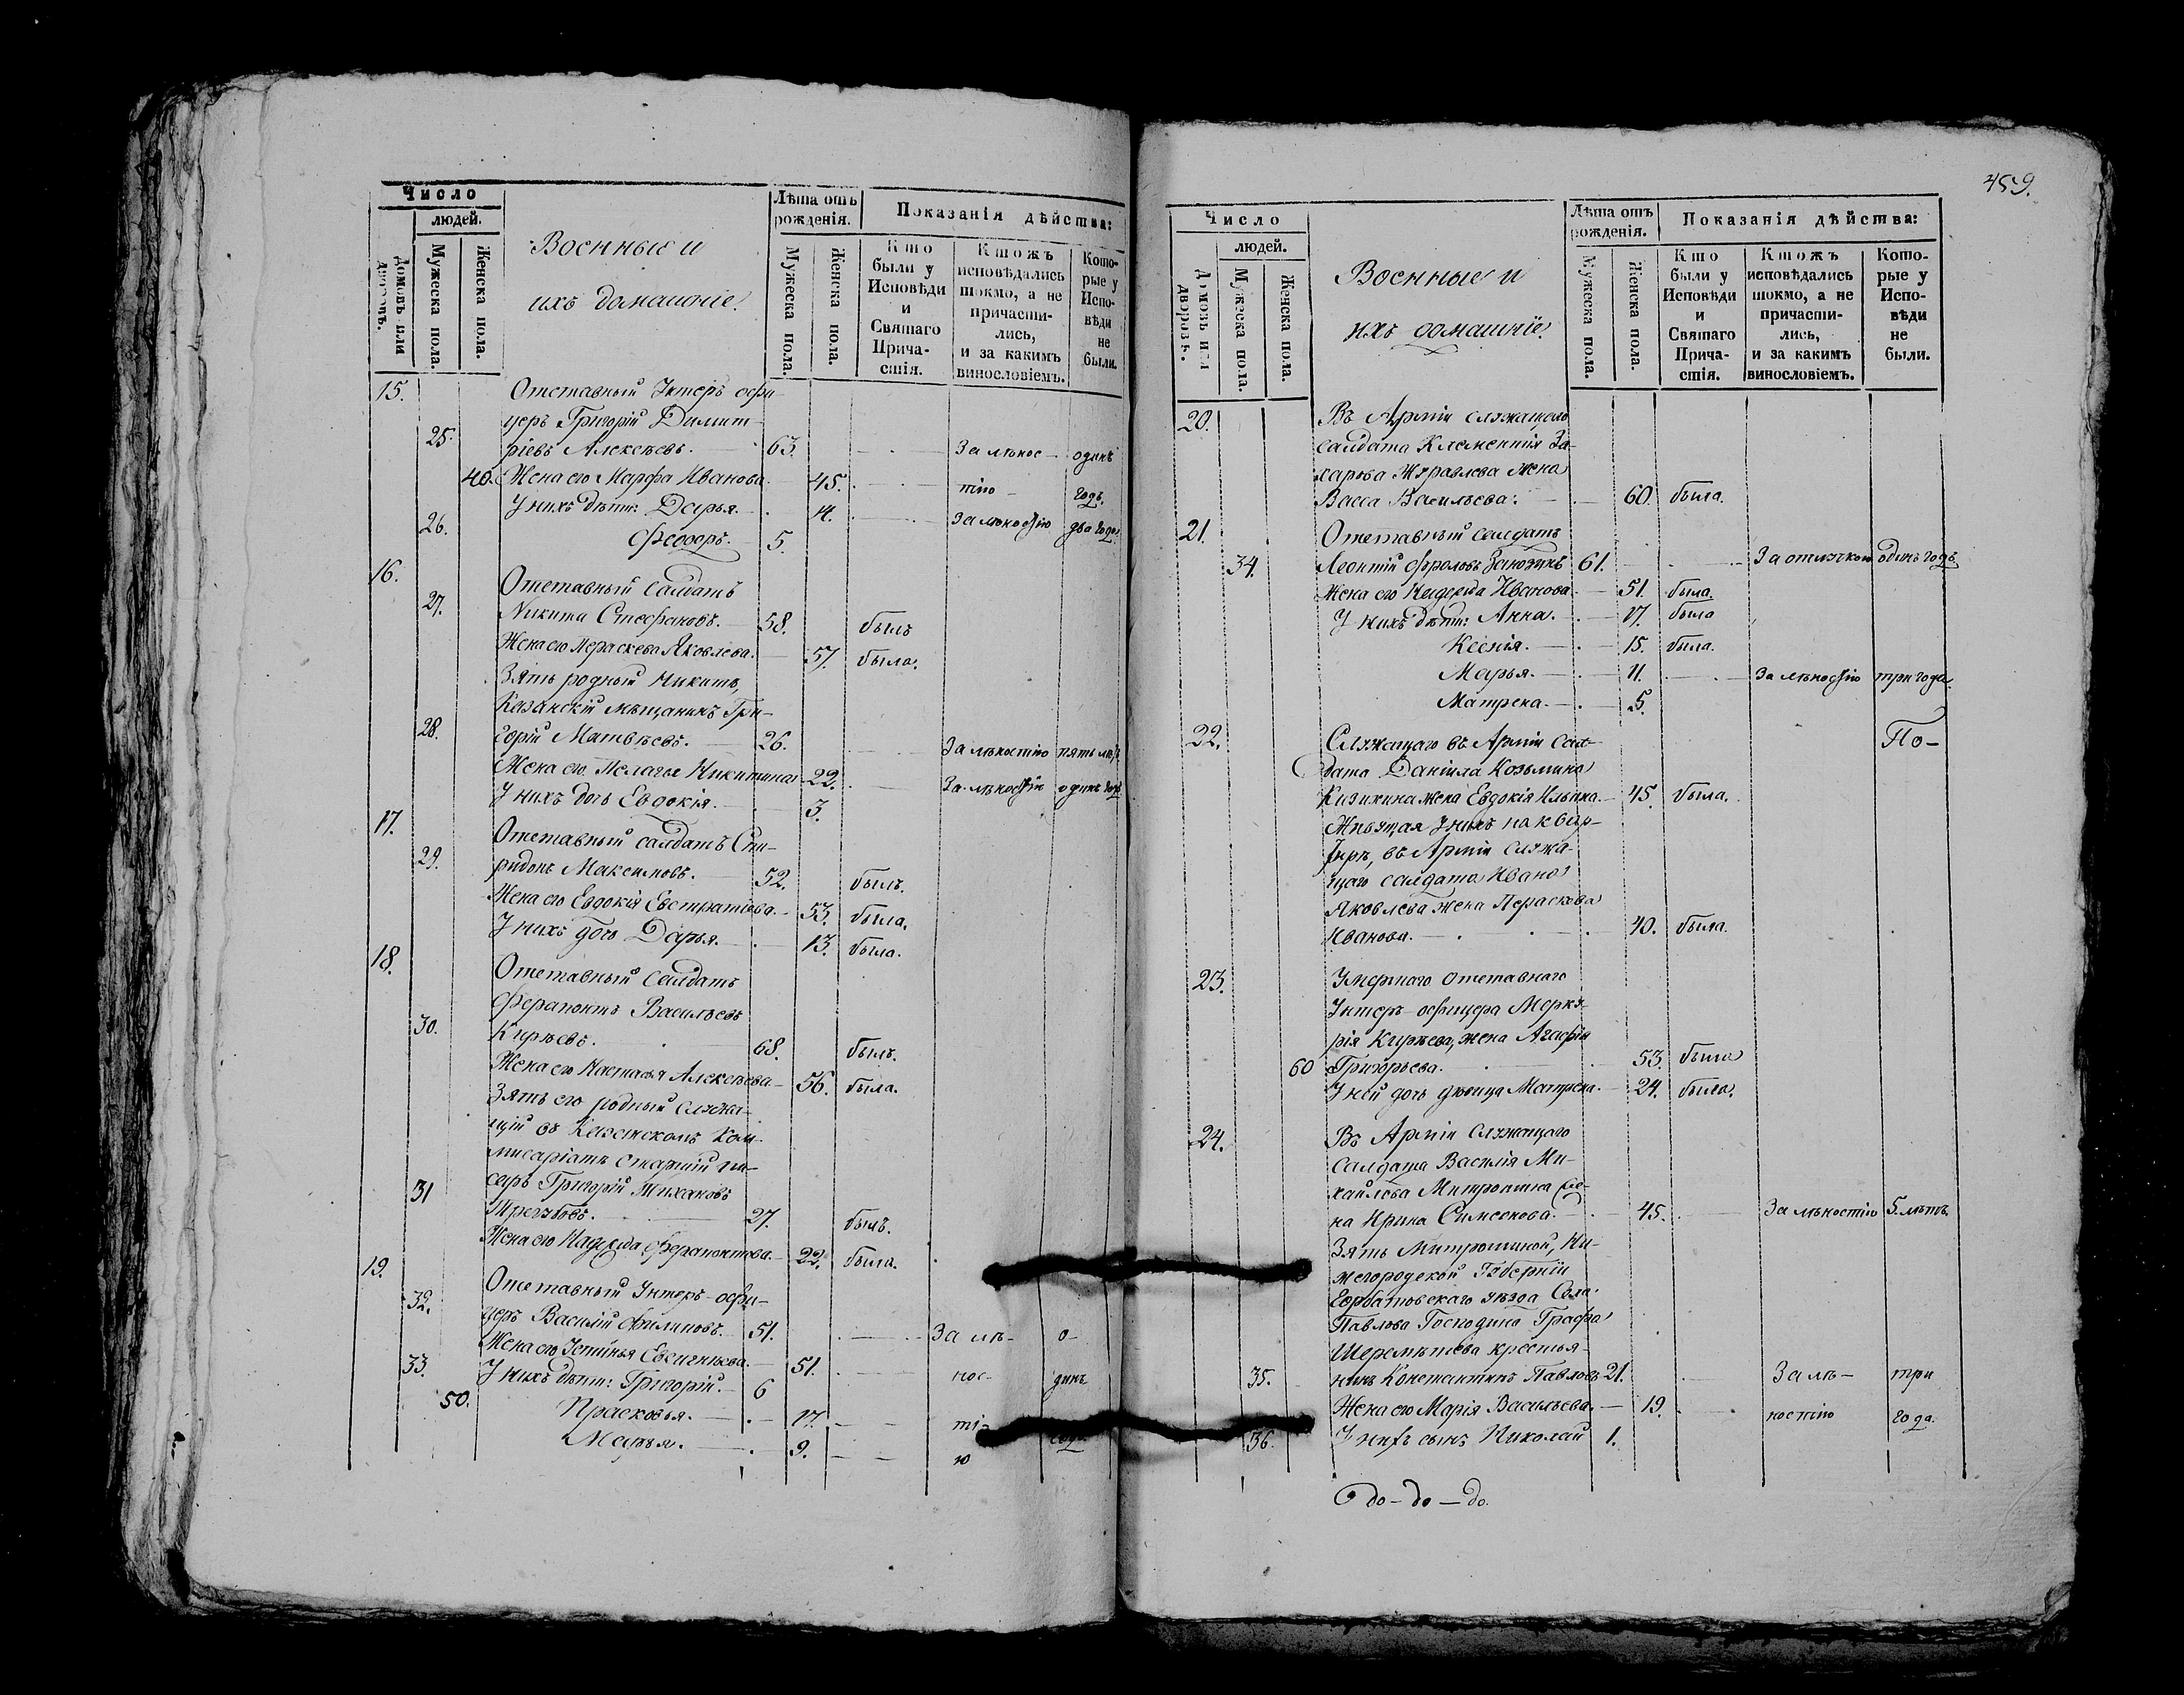 Число
людей.
Домовъ или дворовъ.
Мужеска пола.
Женска пола.
Военные и
ихъ домашніе.
Лѣта отъ рожденія.
Мужеска пола.
Женска пола.
Показанія дѣйства:
Кто были у Исповѣди и Святаго Причастія.
Ктожъ исповѣдались токмо, а не причастились, и за какимъ винословіемъ.
Которые у Исповѣди не были.
15. Отставный Унтеръ офи-
церъ Григорій Димит-
25. ріевъ Алексѣевъ. 63. За лѣнос- одинъ
40. Жена его Марфа Иванова 45. тію годъ.
У нихъ дѣти: Дарья. 14. За лѣностію два года
26. Феодоръ. 5.
16. Отставный Салдатъ
27. Никита Стефановъ. 58. былъ
Жена его Параскева Яковлева. 57. была.
Зять родный Никиты,
Казанскій мѣщанинъ Гри-
28. горій Матвѣевъ. 26. За лѣностію пять лѣтъ
Жена его Пелагья Никитина 22. За лѣностію одинъ годъ
У нихъ дочь Евдокія. 3.
17. Отставный салдатъ Спи-
29. ридонъ Максимовъ. 52. былъ.
Жена его Евдокія Евстратіева. 53. была.
У нихъ дочь Дарья. 13. была.
18. Отставный Салдатъ
Ферапонтъ Васильевъ
30. Кирѣевъ. 68. былъ.
Жена его Настасья Алексѣева 56. была.
Зять его родный служа-
щій въ Казанскомъ Ком-
мисаріатѣ старшій пи-
31 сарь Григорій
Трегубовъ. 27. былъ.
Жена его Надежда Ферапонтова. 22. была.
19. Отставный Унтеръ-офи-
32. церъ Василій Филиповъ. 51. За лѣ- о-
Жена его Устинья Евсигнѣева. 51. нос- динъ
33. У нихъ дѣти: Григорій. 6
50. Прасковья. 17. ті- годъ
Марья. 9. ю
459.
Число
людей.
Домовъ или дворовъ.
Мужеска пола.
Женска пола.
Военные и
ихъ домашніе.
Лѣта отъ рожденія.
Мужеска пола.
Женска пола.
Показанія дѣйства:
Кто были у Исповѣди и Святаго Причастія.
Ктожъ исповѣдались токмо, а не причастились, и за какимъ винословіемъ.
Которые у Исповѣди не были.
20. Въ Арміи служащаго
салдата Климентія За-
харьева Журавлева жена
Васса Васильева. 60. была.
21. Отставный салдатъ
34. Леонтій Фроловъ 61. За отлучкою одинъ годъ
Жена его Надежда Иванова 51. была.
У нихъ дѣти: Анна. 17. была
Ксенія. 15. была.
Марья. 11. За лѣностію три года.
Матрена. 5.
22. Служащаго въ Арміи Сал- По-
дата Даніила Козьмина
Кизикина жена Евдокія Ильина. 45. была.
Живущая у нихъ на квар-
тирѣ, въ Арміи служа-
щаго салдата Ивана
Яковлева жена Параскева
Иванова. 40. была.
23. Умершаго отставнаго
Унтеръ-офицера Мерку-
рія Кирѣева, жена Агафія
60 Григорьева. 53. была
У ней дочь дѣвица Матрена. 24. была.
24. Въ Арміи Служащаго
Салдата Василія Ми-
хайлова Митрошина же-
на Ирина Симеонова. 45. За лѣностію 5. лѣтъ
Зять Митрошиной, Ни-
жегородской Губерніи
Горбатовскаго уѣзда Села
Павлова Господина Графа
Шереметева крестья-
35. нинъ Константинъ Павловъ 21. За лѣ- три
Жена его Марія Васильева. 19. ностію года.
36. У нихъ сынъ Николай 1.
до-до-до.